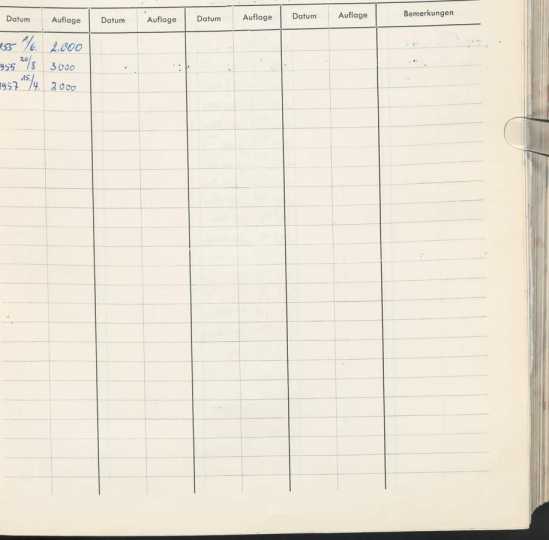 Datum Auflage Datum Auflage Datum Auflage Datum Auflage Bemerkungen
2.000
1955 20/8 3000
1957 25/4. 2000